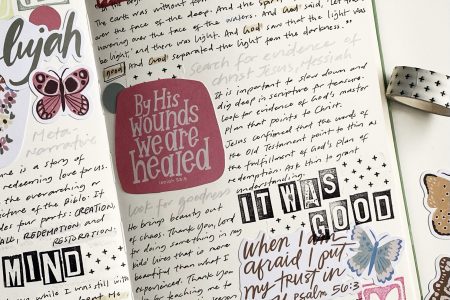 the beg
The earth was without for
over the face of the deep. And the Spir
hovering over the face of the waters. And God said, 'let the
be light' and there was light. And God saw that the light was
good And God separated the light from the darkness."
lujah
Search for evidence of
Christ Jesus, Messiah
It is important to slow down and
dig deep in scripture for treasure.
Look for evidence of God's master
plan that points to Christ.
Jesus confirmed that the words of
the Old Testament point to him as
the fulfillment of God's plan of
redemption. Ask him to grant
understanding.
By His
wounds
we are
healed
Isaiah 53:5
Meta
Narrative
ne is a story of
redeeming love for us.
the overarching
picture of the Bible. It
des four parts: CREATION,
FALL, REDEMPTION and
RESTORATION.
MIND
while I was still with
look for goodness
He brings beauty out
of chaos. Thank you, Lord
for doing something in my
kids' lives that is more
beautiful than what I
experienced. Thank You
for teaching me to
IT WAS
GOOD
When I am
afraid I put
my trust in
Psalm 56:3